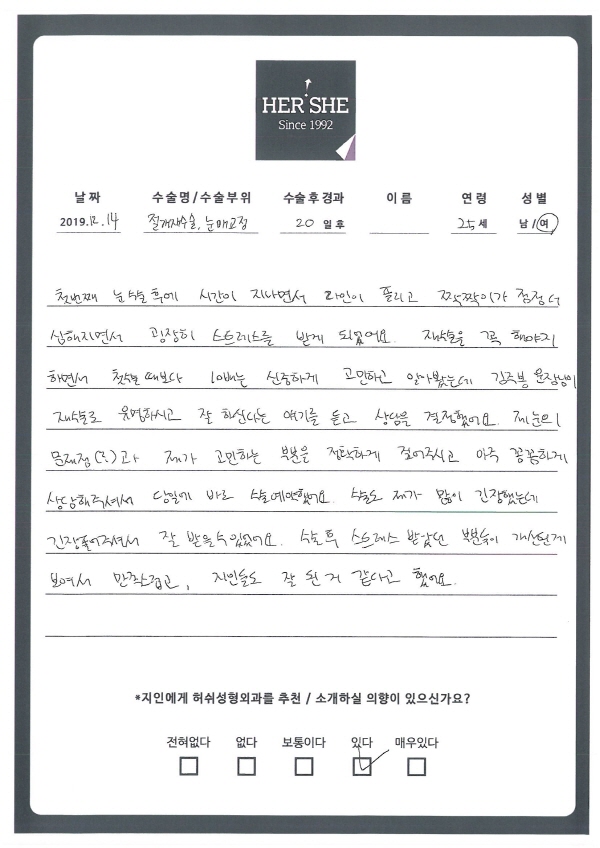 HER SHE
Since 1992
날짜 수술명/수술부위 수술후경과 이름 연령 성별
2019.12.14 절개재수술, 눈매교정 20 일 후 25 세 남/여
첫번째 눈수술후에 시간이 지나면서 라인이 풀리고 짝짝이가 점점더
심해지면서 굉장히 스트레스를 받게 되었어요. 재수술을 꼭 해야지
하면서 첫수술때보다 10배는 신중하게 고민하고 알아봤는데 김주봉 원장님이
재수술로 유명하시고 잘 하신다는 얘기를 듣고 상담을 결정했어요. 제눈의
문제점(?)과 제가 고민하는 부분을 정확하게 짚어주시고 아주 꼼꼼하게
상담해주셔서 당일에 바로 수술예약했어요. 수술도 제가 많이 긴장했는데
긴장풀어주셔서 잘 받을수있었어요. 수술후 스트레스 받았던 부분들이 개선된게
보여서 만족스럽고, 지인들도 잘 된거 같다고 했어요.
*지인에게 허쉬성형외과를 추천 / 소개하실 의향이 있으신가요?
전혀없다 없다 보통이다 있다 매우있다